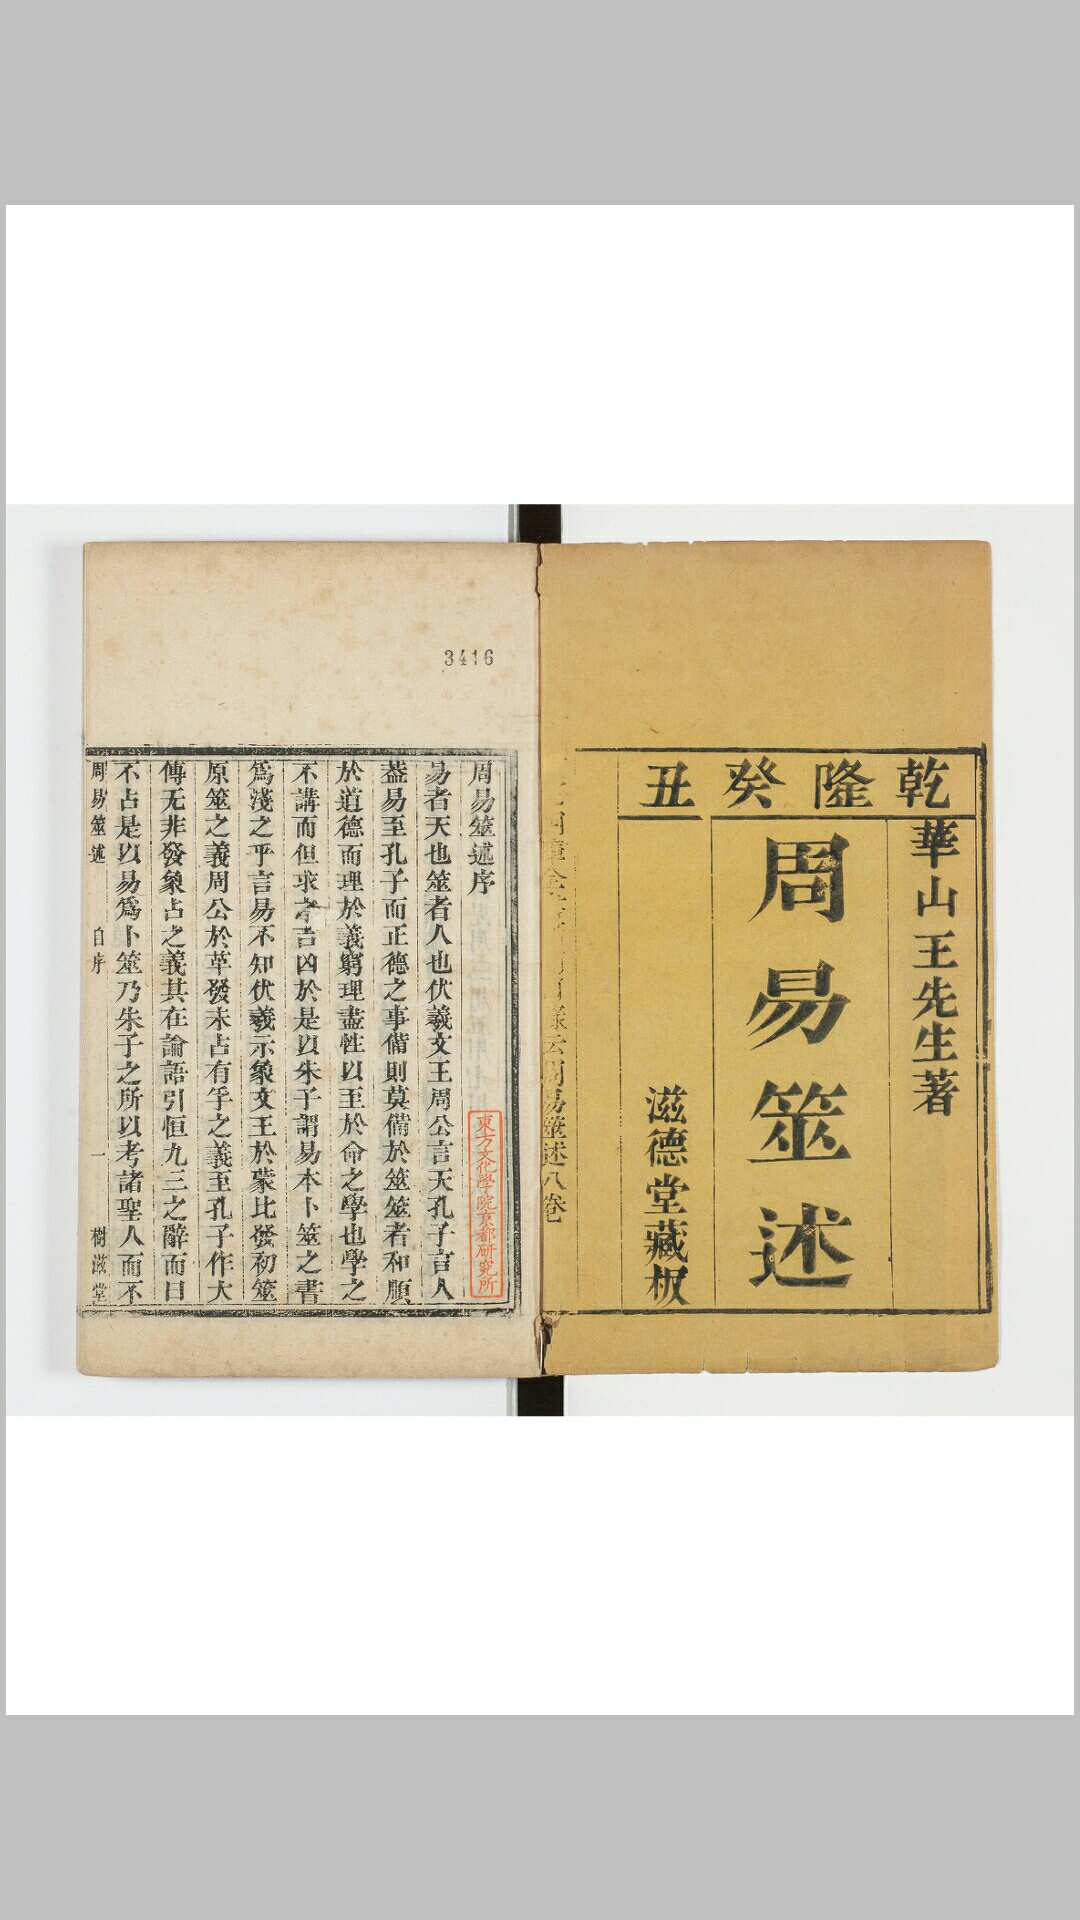 乾隆癸丑
華山王先生著
周易筮述
滋德堂藏板
周易筮述八卷
3416
周易筮述序
易者天也筮者人也伏羲文王周公言天孔子言人
葢易至孔子而正德之事偹則莫備於筮筮者和順
於道德而理於義窮理盡性以至於命之學也學之
不講而但求之吉凶於是以朱子謂易本卜筮之書
爲淺之乎言易不知伏羲示象文王於蒙比發初筮
原筮之義周公於革發未占有孚之義至孔子作大
傳无非發象占之義其在論語引恒九三之辭而曰
不占是以易爲卜筮乃朱子之所以考諸聖人而不
周易筮述 自序 一 樹滋堂
東方文化學院京都研究所